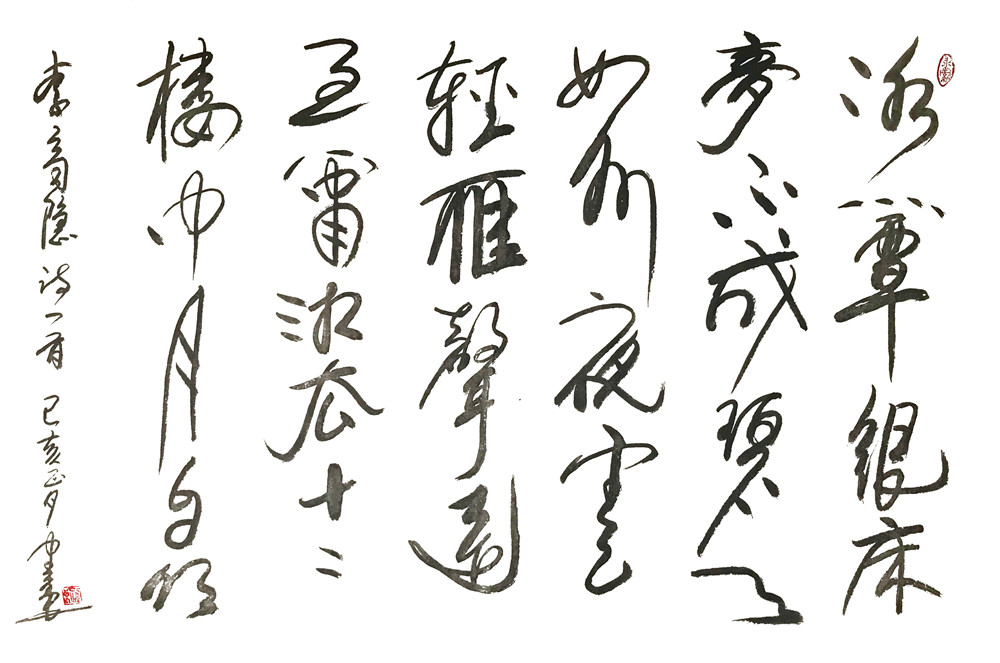 冰簟銀床
夢不成碧天
如水夜雲
輕雁聲遠
過瀟湘去十二
樓中月自明
李商隐诗一首 己亥正月